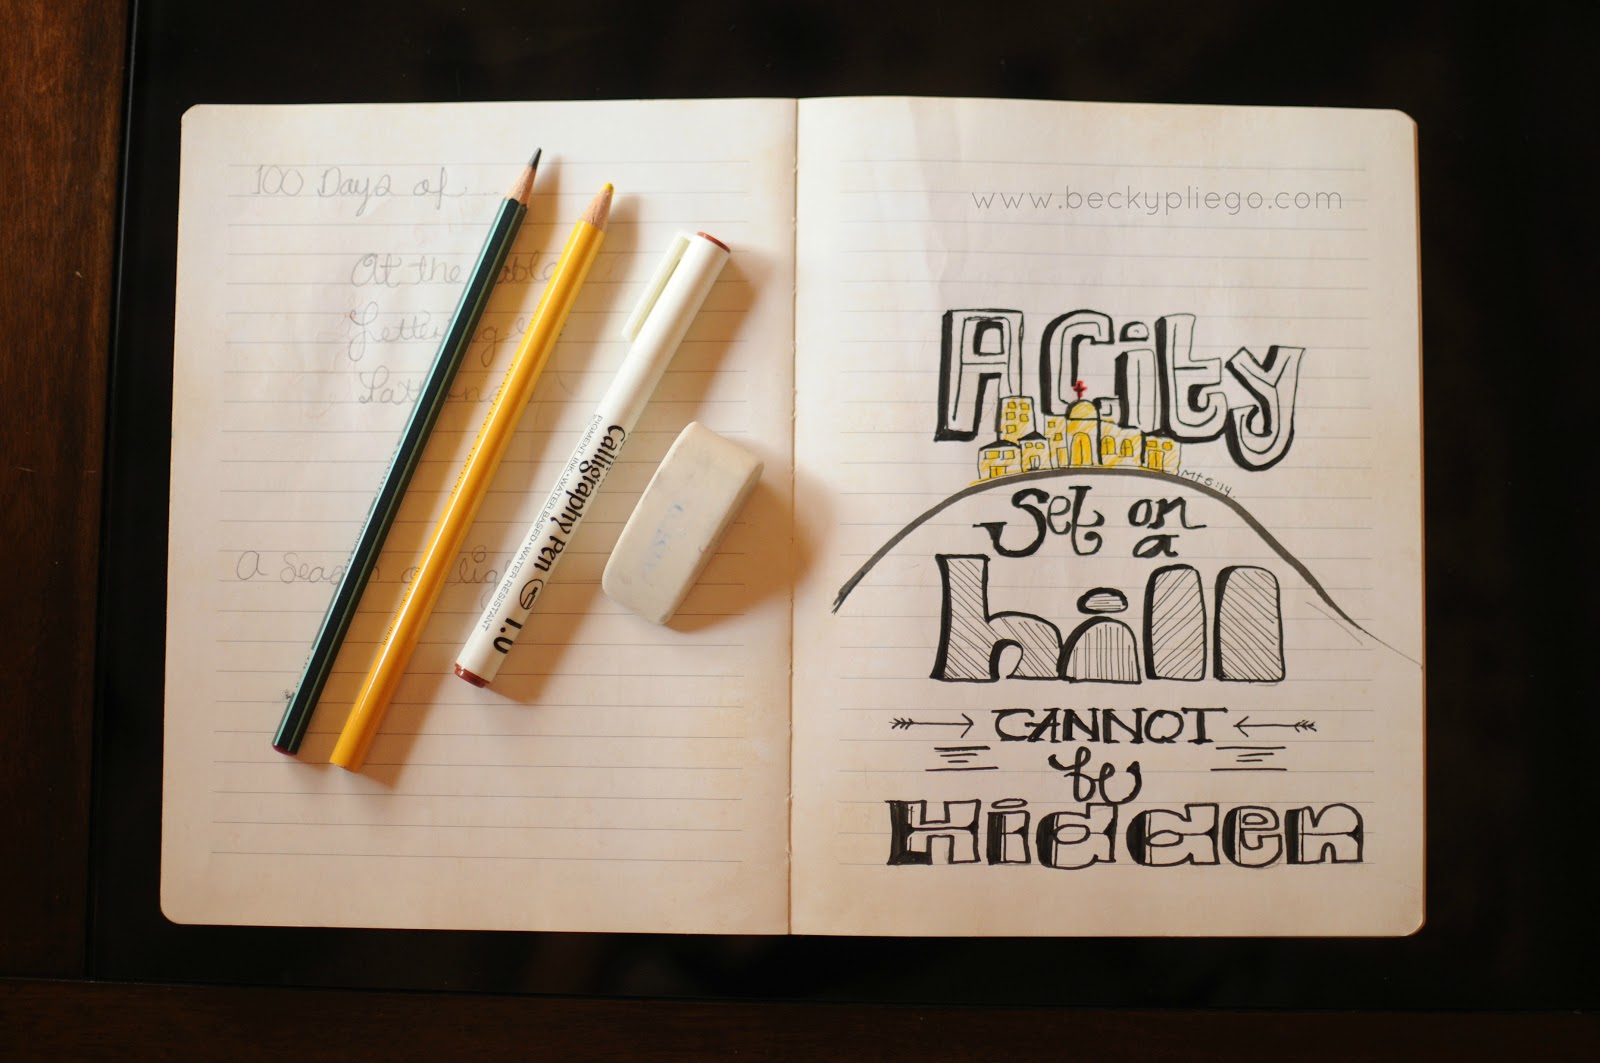 100 Days of
At the table
Lettering
A Season of lig
Calligraphy Pen 1.0
PIGMENT INK · WATER BASED · WATER RESISTANT
www.beckypliego.com
A City
Mt 5:14.
Set on
a
hill
CANNOT
be
Hidden